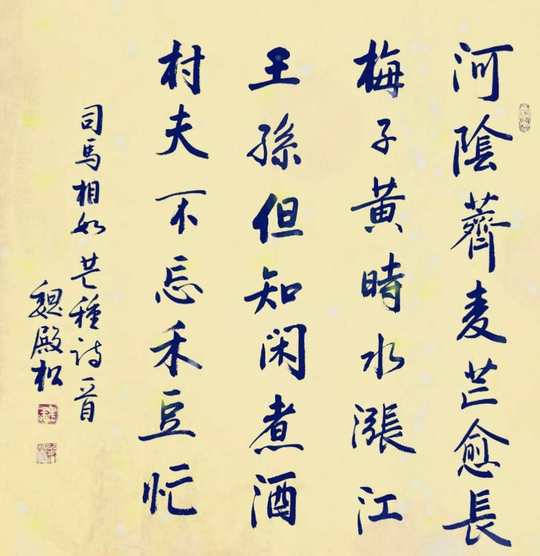 河陰薺麦芒愈長
梅子黄時水漲江
王孫但知闲煮酒
村夫不忘禾豆忙
司馬相如芒種诗一首
魏殿松